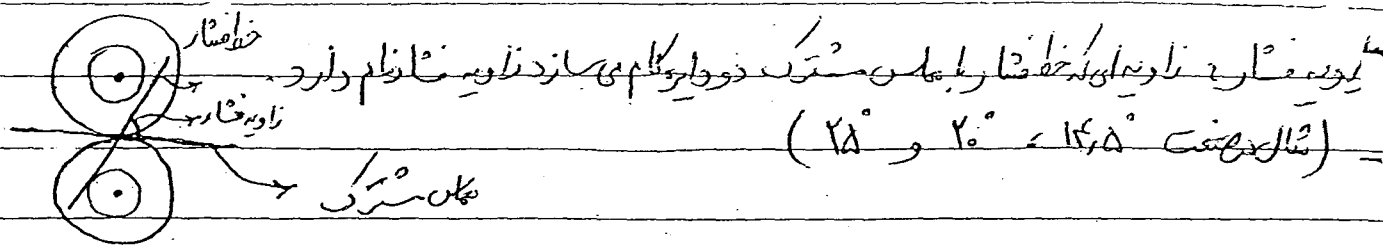 زاویه فشار: زاویه‌ای که خط فشار با مماس مشترک دو دایره گام می‌سازد زاویه فشار نام دارد.
(مثال در صنعت ۱۴٫۵° ، ۲۰° و ۲۵°)
خط فشار
زاویه فشار
مماس مشترک